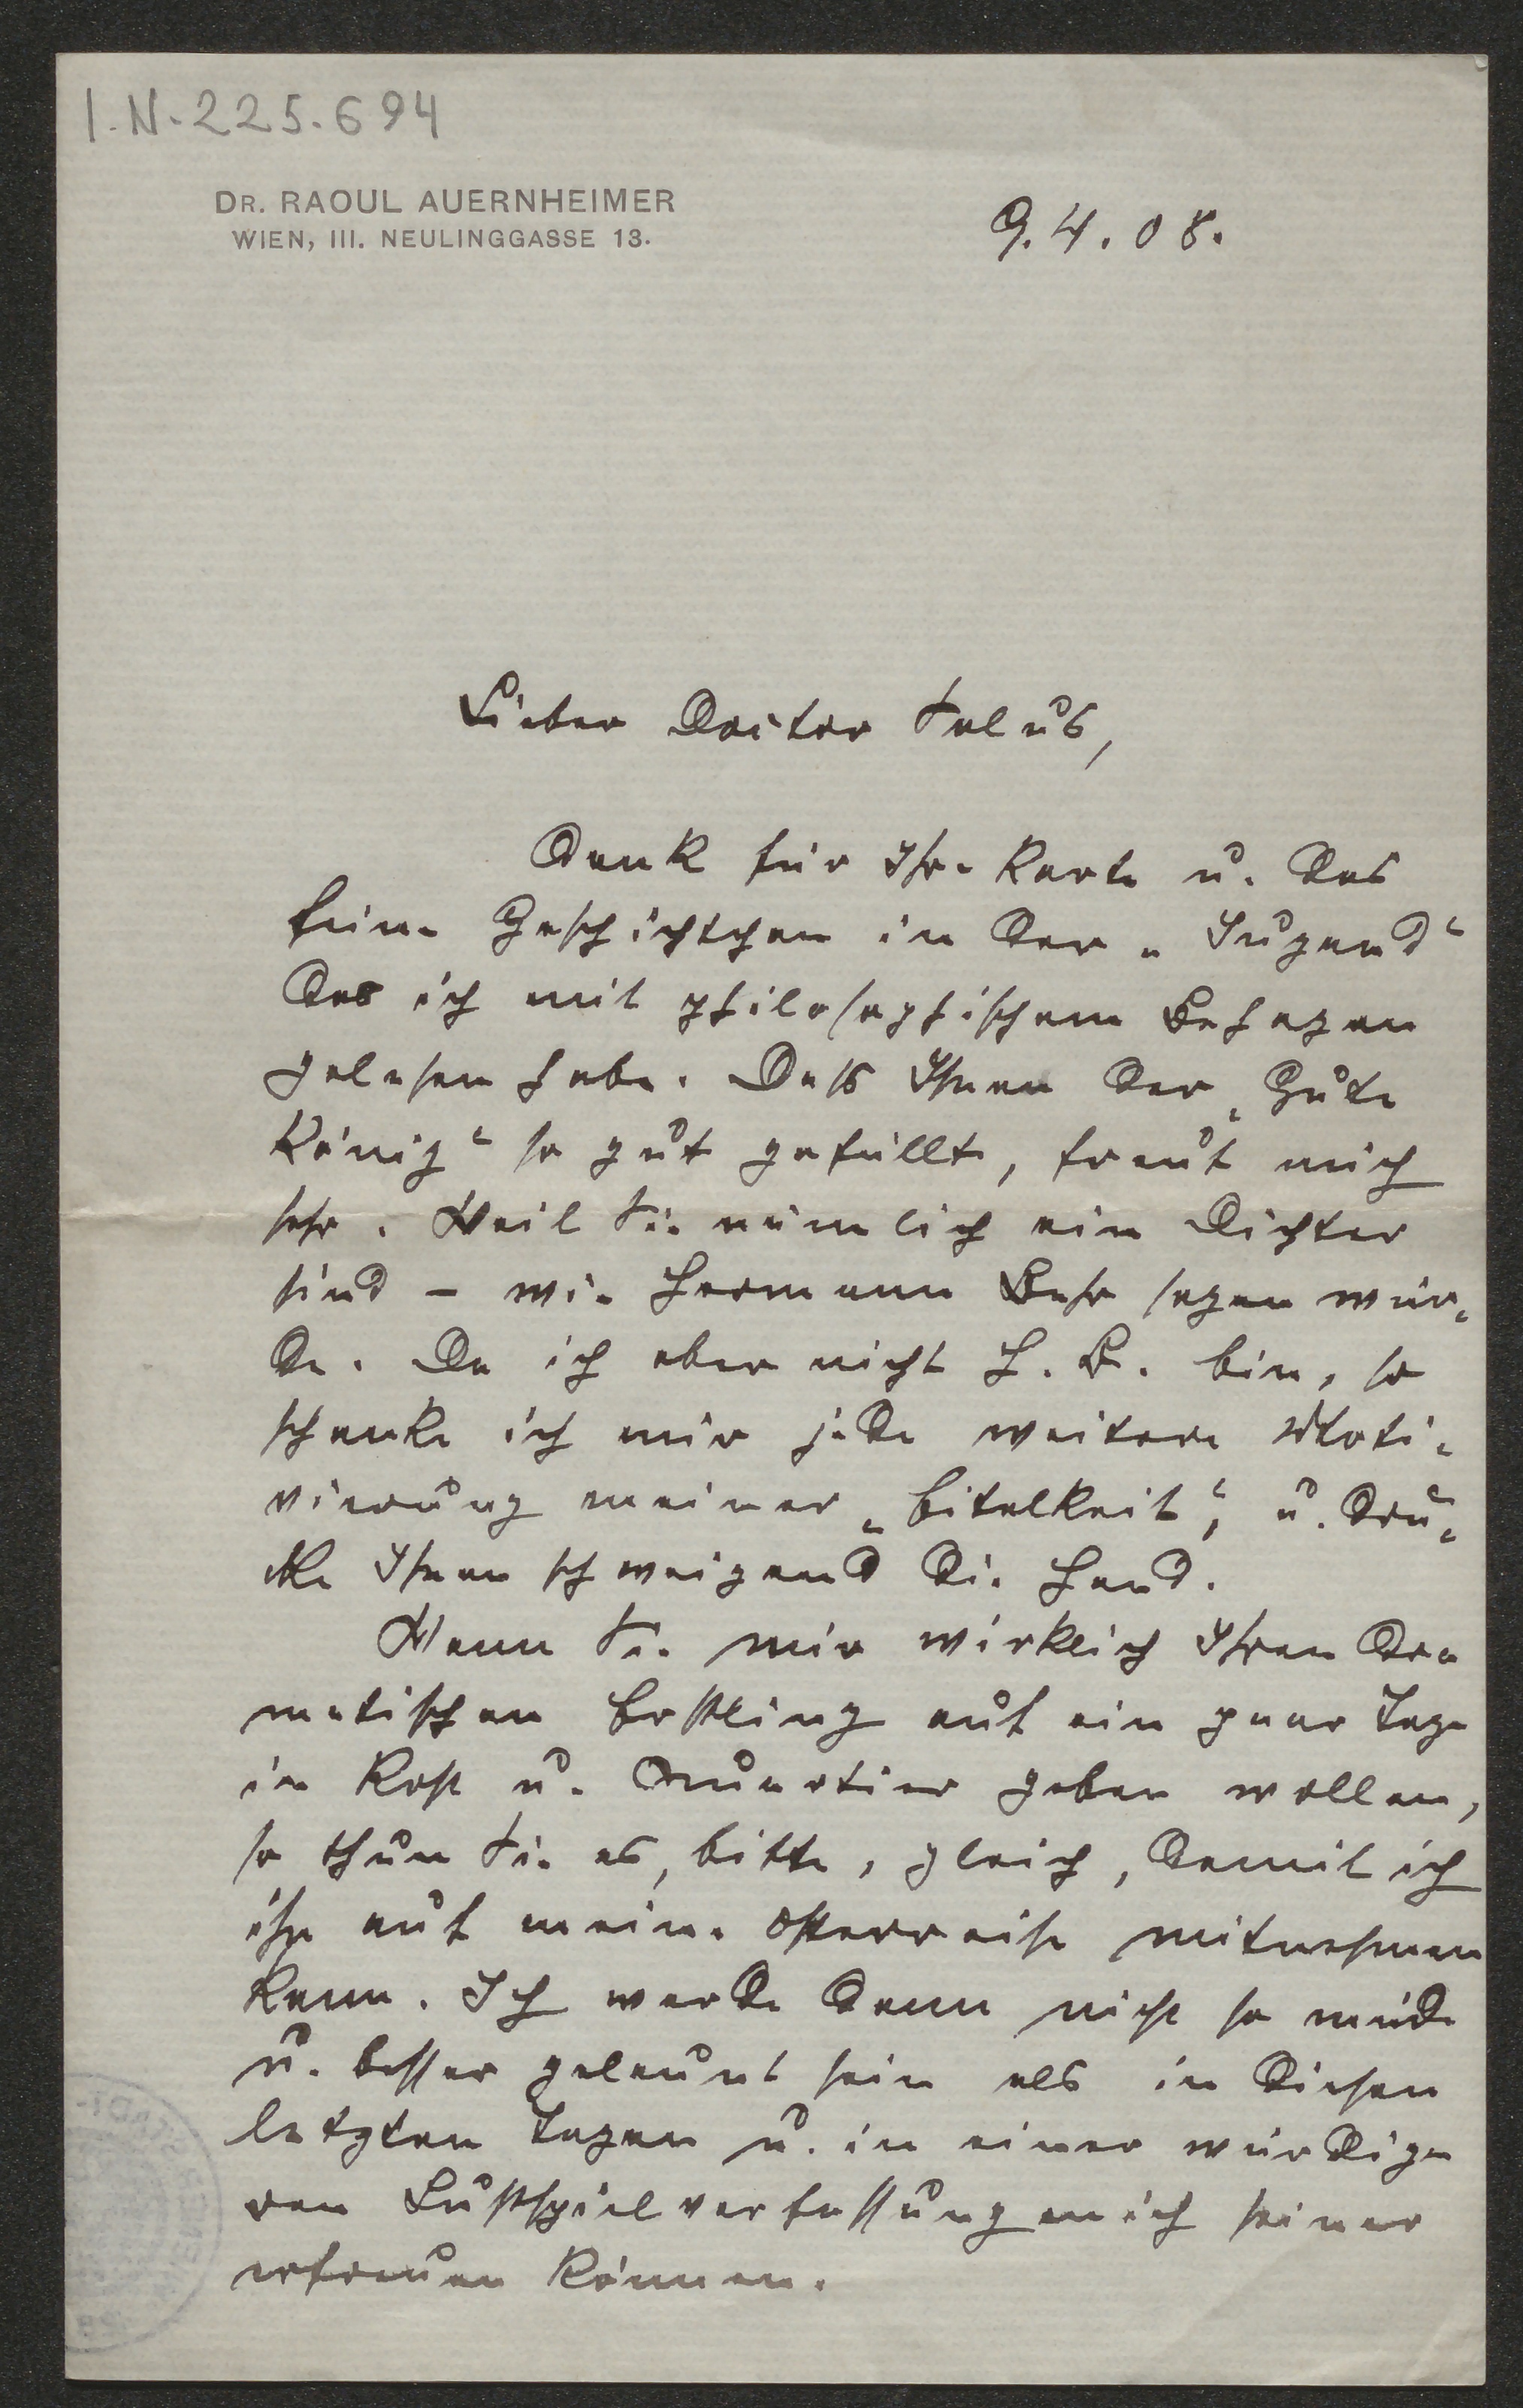 I.N. 225.694
DR. RAOUL AUERNHEIMER
WIEN, III. NEULINGGASSE 13.
9.4.08.
Lieber Doctor Salus,
Dank für Ihre Karte u. das
feine Geschichtchen in der „Jugend“
das ich mit philosophischem Behagen
gelesen habe. Dass Ihnen der „Gute
König“ so gut gefällt, freut mich
sehr. Weil Sie nämlich ein Dichter
sind – wie Hermann Bahr sagen wür-
de. Da ich aber nicht H. B. bin, so
schenke ich mir jede weitere Moti-
vierung meiner „Eitelkeit“, u. drü-
cke Ihnen schweigend die Hand.
Wenn Sie mir wirklich Ihren dra
matischen Erstling auf ein paar Tage
in Kost u. Quartier geben wollen,
so thun Sie es, bitte, gleich, damit ich
ihn auf meine Osterreise mitnehmen
kann. Ich werde dann nicht so müde
u. besser gelaunt sein als in diesen
letzten Tagen u. in einer würdige
ren Lustspielverfassung mich seiner
erfreuen können.